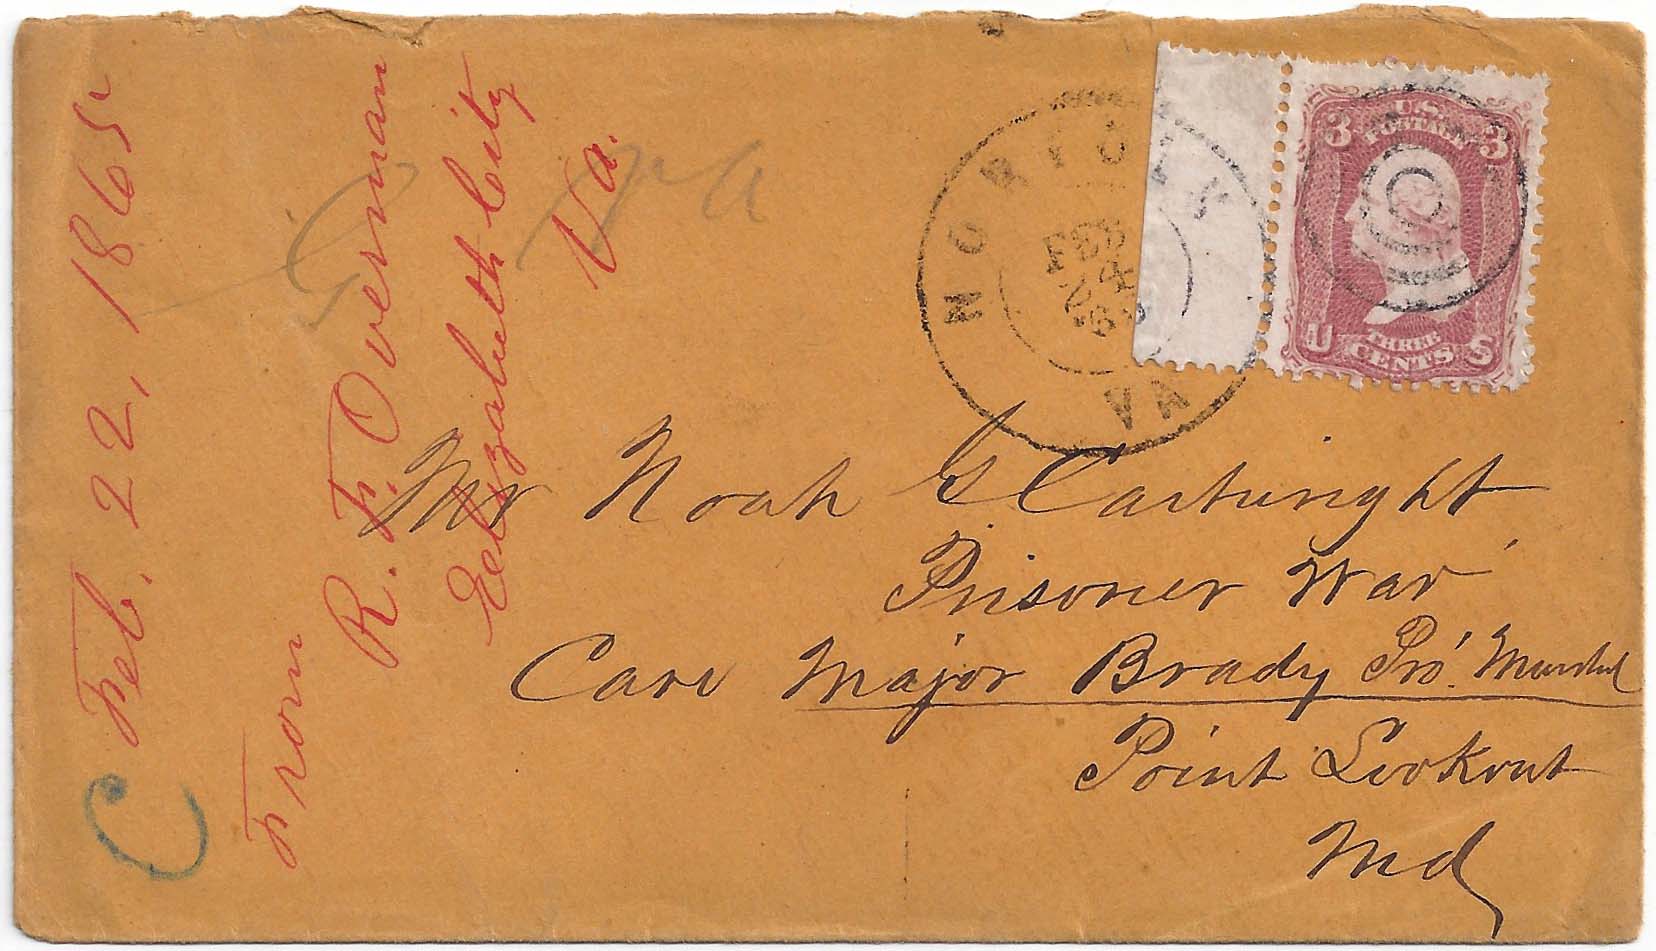 Feb. 22, 1865
From
R. F. Overman
Eelizabeth City
Va.
C
NORFOLK
FEB
24
'65
VA
3 3
U.S.
POSTAGE
U S
THREE
CENTS
Mr Noah G Cartwright
Prisoner War
Care Major Brady Pro. Marshal
Point Lookout
Md